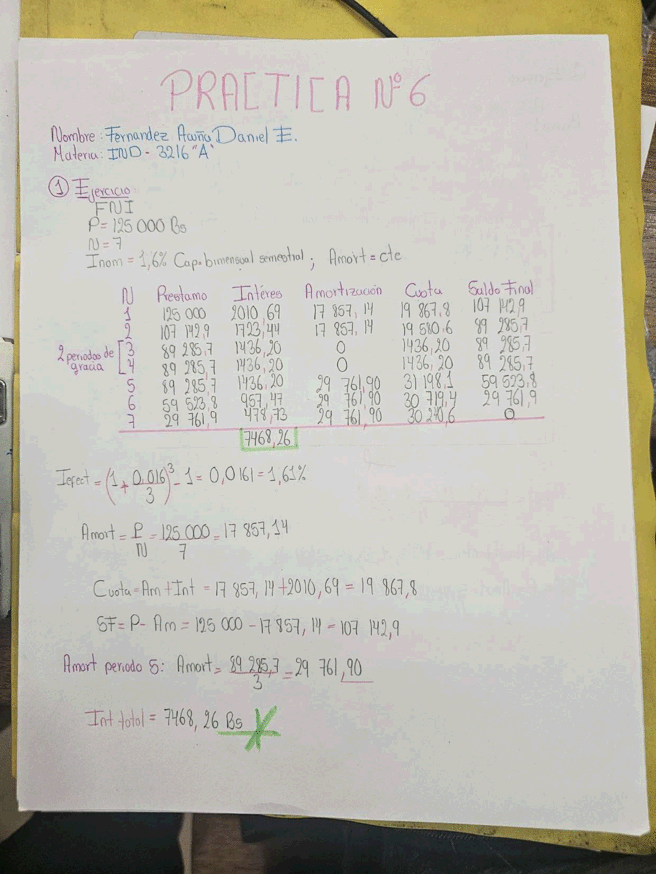 PRACTICA Nº 6
Nombre: Fernandez Acuña Daniel E.
Materia: IND - 3216 "A"
① Ejercicio
FNI
P= 125 000 Bs
N = 7
Inom = 1,6% Cap. bimensual semestral ; Amort = cte
N Prestamo Intéres Amortización Cuota Saldo Final
1 125 000 2010,69 17 857,14 19 867,8 107 142,9
2 107 142,9 1723,44 17 857,14 19 580,6 89 285,7
2 periodos de gracia
3 89 285,7 1436,20 0 1436,20 89 285,7
4 89 285,7 1436,20 0 1436,20 89 285,7
5 89 285,7 1436,20 29 761,90 31 198,1 59 523,8
6 59 523,8 957,47 29 761,90 30 719,4 29 761,9
7 29 761,9 478,73 29 761,90 30 240,6 0
7468,26
Iefect = (1 + 0,016/3)³ - 1 = 0,0161 = 1,61%
Amort = P/N = 125 000/7 = 17 857,14
Cuota = Am + Int = 17 857,14 + 2010,69 = 19 867,8
SF = P - Am = 125 000 - 17 857,14 = 107 142,9
Amort periodo 5: Amort = 89 285,7/3 = 29 761,90
Int total = 7468,26 Bs